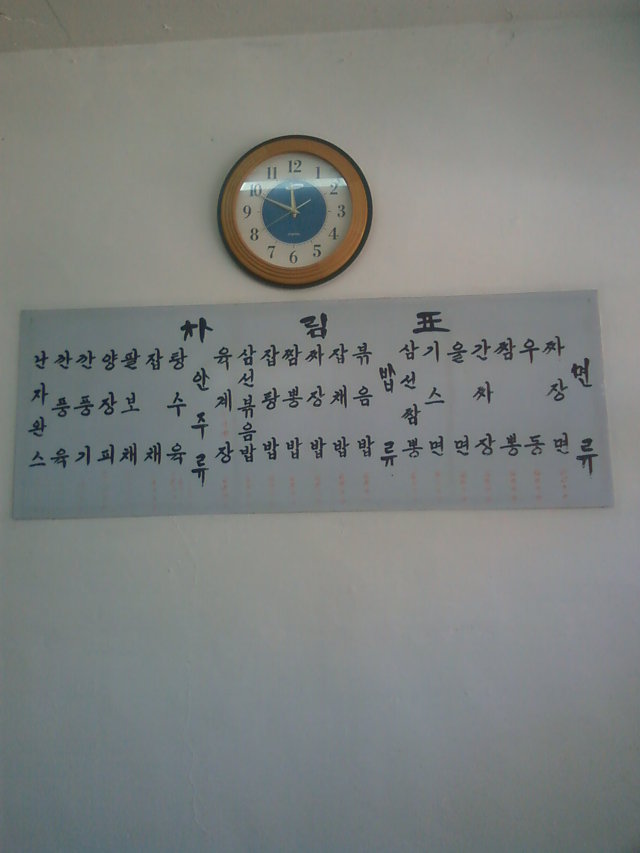 12
1
2
3
4
5
6
7
8
9
10
11
차림표
면류
짜장면
우동
짬뽕
간짜장
울면
기스면
삼선짬뽕
밥류
볶음밥
잡채밥
짜장밥
짬뽕밥
잡탕밥
삼선볶음밥
육계장
안주류
탕수육
잡채
팔보채
양장피
깐풍기
깐풍육
난자완스